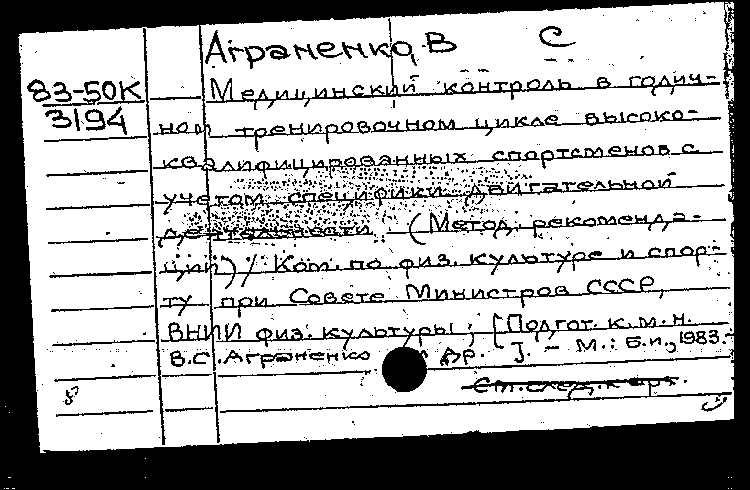 Аграненко В С
83-50К
3194
Медицинский контроль в годич-
ном тренировочном цикле высоко-
квалифицированных спортсменов с
учетом специфики двигательной
деятельности. (Метод. рекоменда-
ции) / Ком. по физ. культуре и спор-
ту при Совете Министров СССР,
ВНИИ физ. культуры; [Подгот. к.м.н.
В.С. Аграненко др.]. - М.: Б.и., 1983.-
См. след. карт.